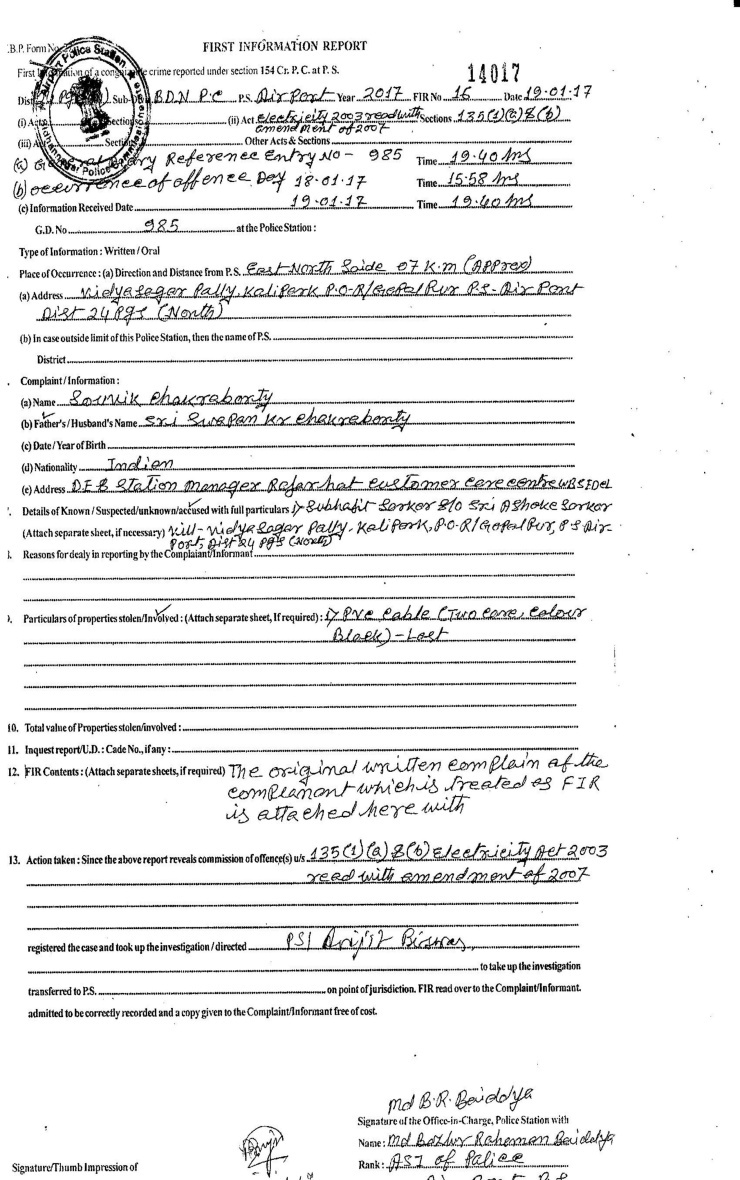 B.P. Form No.
FIRST INFORMATION REPORT
14017
First Information of a cognizable crime reported under section 154 Cr. P. C. at P. S.
Dist. Sub-Div. BDN P.C P.S. Air Port Year 2017 FIR No 16 Date 19-01-17
(i) Act Section (ii) Act Electricity 2003 read with Sections 135(1)(a) & (b)
amendment of 2007
(iii) Section Other Acts & Sections
(a) General Diary Reference Entry No - 985 Time 19.40 hrs
(b) occurrence of offence Day 18-01-17 Time 15:58 hrs
(c) Information Received Date 19-01-17 Time 19.40 hrs
G.D. No 985 at the Police Station :
Type of Information : Written / Oral
Place of Occurrence : (a) Direction and Distance from P.S. East North Saide 07 K.m (Approx)
(a) Address Vidyasagar Pally, Kalipark P.O-R/Gopalpur P.S- Air Port
Dist 24 Pgs (North)
(b) In case outside limit of this Police Station, then the name of P.S.
District
Complaint / Information :
(a) Name Sounik Chakraborty
(b) Father's / Husband's Name Sri Swapan Kr Chakraborty
(c) Date / Year of Birth
(d) Nationality Indian
(e) Address D.E & Station Manager Rajarhat customer care centre WBSEDCL
Details of Known / Suspected/unknown/accused with full particulars 1) Subhajit Sarkar S/O Sri Ashoke Sarkar
(Attach separate sheet, if necessary) Vill- Vidyasagar Pally, Kalipark, P.O-R/Gopalpur, P S Air
Port, Dist 24 Pgs (North)
Reasons for dealy in reporting by the Complaint/Informant
Particulars of properties stolen/Involved : (Attach separate sheet, If required) : 1) PVC Cable (Two Core, Colour
Black) - Lost
10. Total value of Properties stolen/involved :
11. Inquest report/U.D. : Cade No., if any :
12. FIR Contents : (Attach separate sheets, if required) The original written complain of the
complianant which is treated as FIR
is attached here with
13. Action taken : Since the above report reveals commission of offence(s) u/s 135(1)(a) & (b) Electricity Act 2003
read with amendment of 2007
registered the case and took up the investigation / directed PSI Arijit Biswas
to take up the investigation
transferred to P.S. on point of jurisdiction. FIR read over to the Complaint/Informant.
admitted to be correctly recorded and a copy given to the Complaint/Informant free of cost.
Md B.R. Baiddya
Signature of the Office-in-Charge, Police Station with
Name : Md Bazlur Rahaman Baiddya
Signature/Thumb Impression of
Rank : ASI of Police